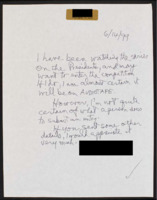 6/14/99
I have been watching the series
on the Presidents, and may
want to enter the competition
I am almost certain it
will be
However, I'm not quite
certain of what a person does
to submit an entry.
If you send some other
details, I would appreciate it
very much.